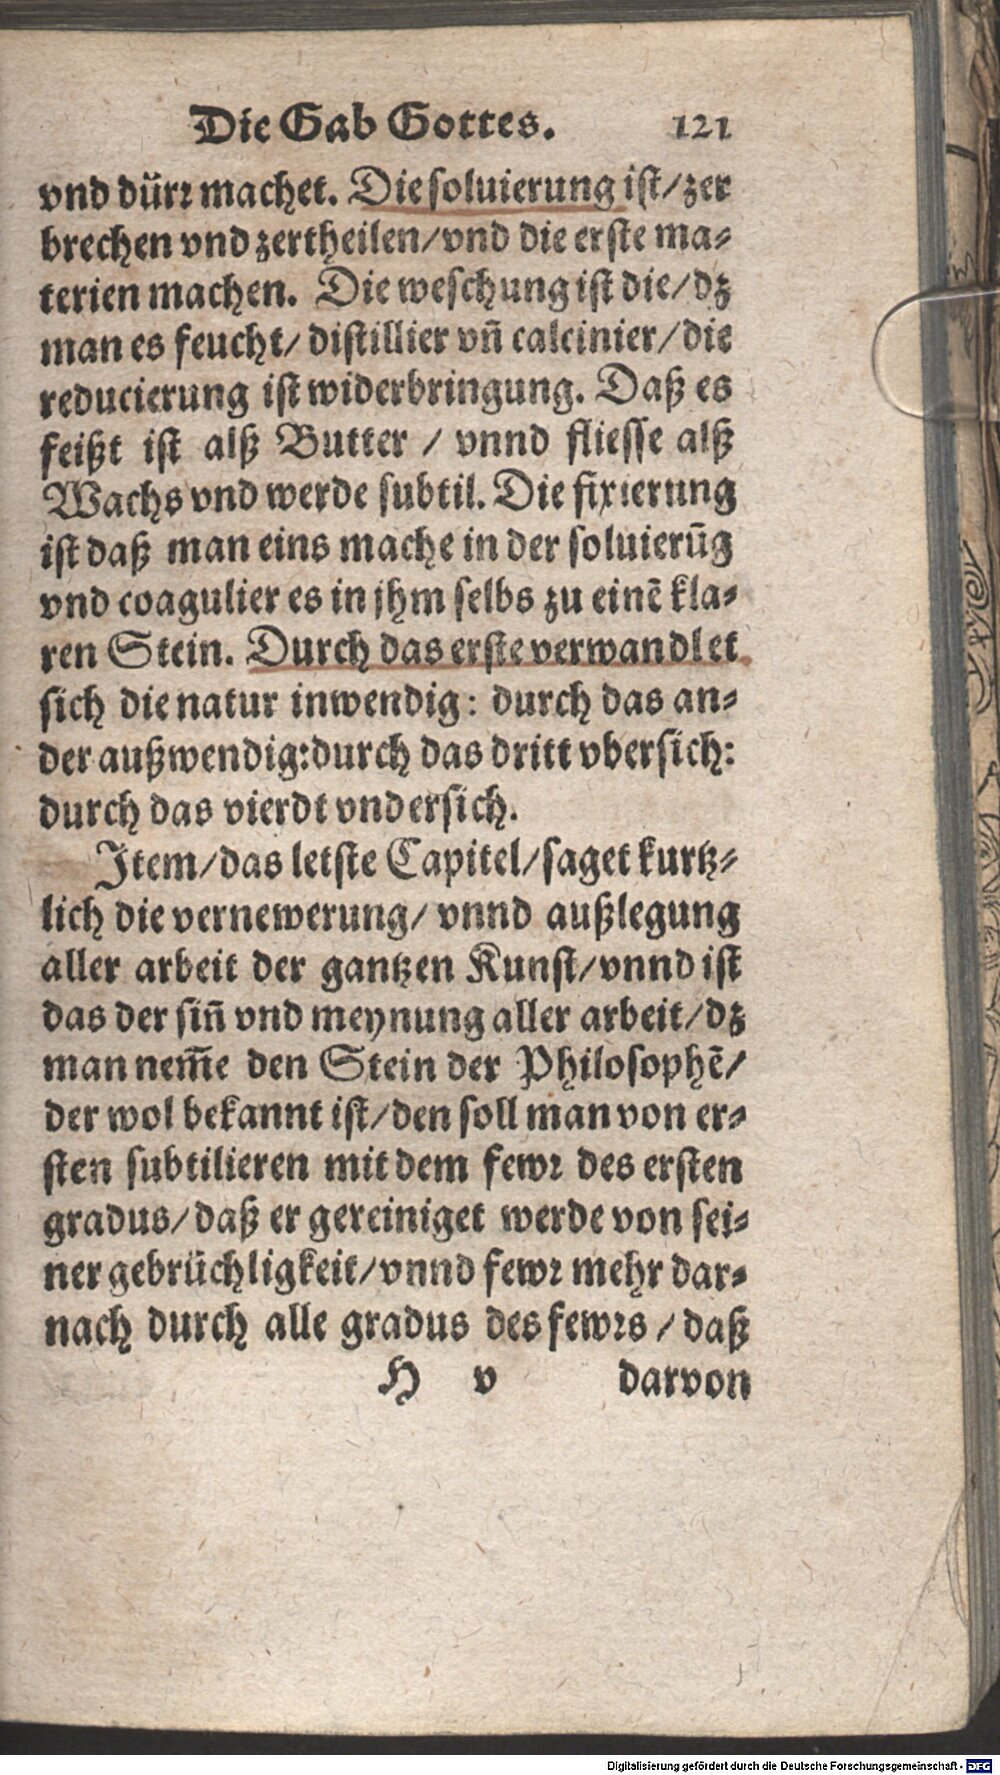 Die Gab Gottes. 121
vnd dürꝛ machet. Die soluierung ist/zer
brechen vnd zertheilen/vnd die erste ma-
terien machen. Die weschung ist die/dz
man es feucht/distillier vñ calcinier/die
reducierung ist widerbringung. Daß es
feißt ist alß Butter / vnnd fliesse alß
Wachs vnd werde subtil. Die fixierung
ist daß man eins mache in der soluierūg
vnd coagulier es in jhm selbs zu einẽ kla-
ren Stein. Durch das erste verwandlet
sich die natur inwendig: durch das an-
der außwendig:durch das dritt vbersich:
durch das vierdt vndersich.
Item/das letste Capitel/saget kurtz-
lich die vernewerung/ vnnd außlegung
aller arbeit der gantzen Kunst/vnnd ist
das der siñ vnd meynung aller arbeit/dz
man nem̃e den Stein der Philosophẽ/
der wol bekannt ist/den soll man von er-
sten subtilieren mit dem fewꝛ des ersten
gradus/daß er gereiniget werde von sei-
ner gebrüchligkeit/vnnd fewꝛ mehr dar-
nach durch alle gradus des fewꝛs / daß
H v darvon
Digitalisierung gefördert durch die Deutsche Forschungsgemeinschaft - DFG